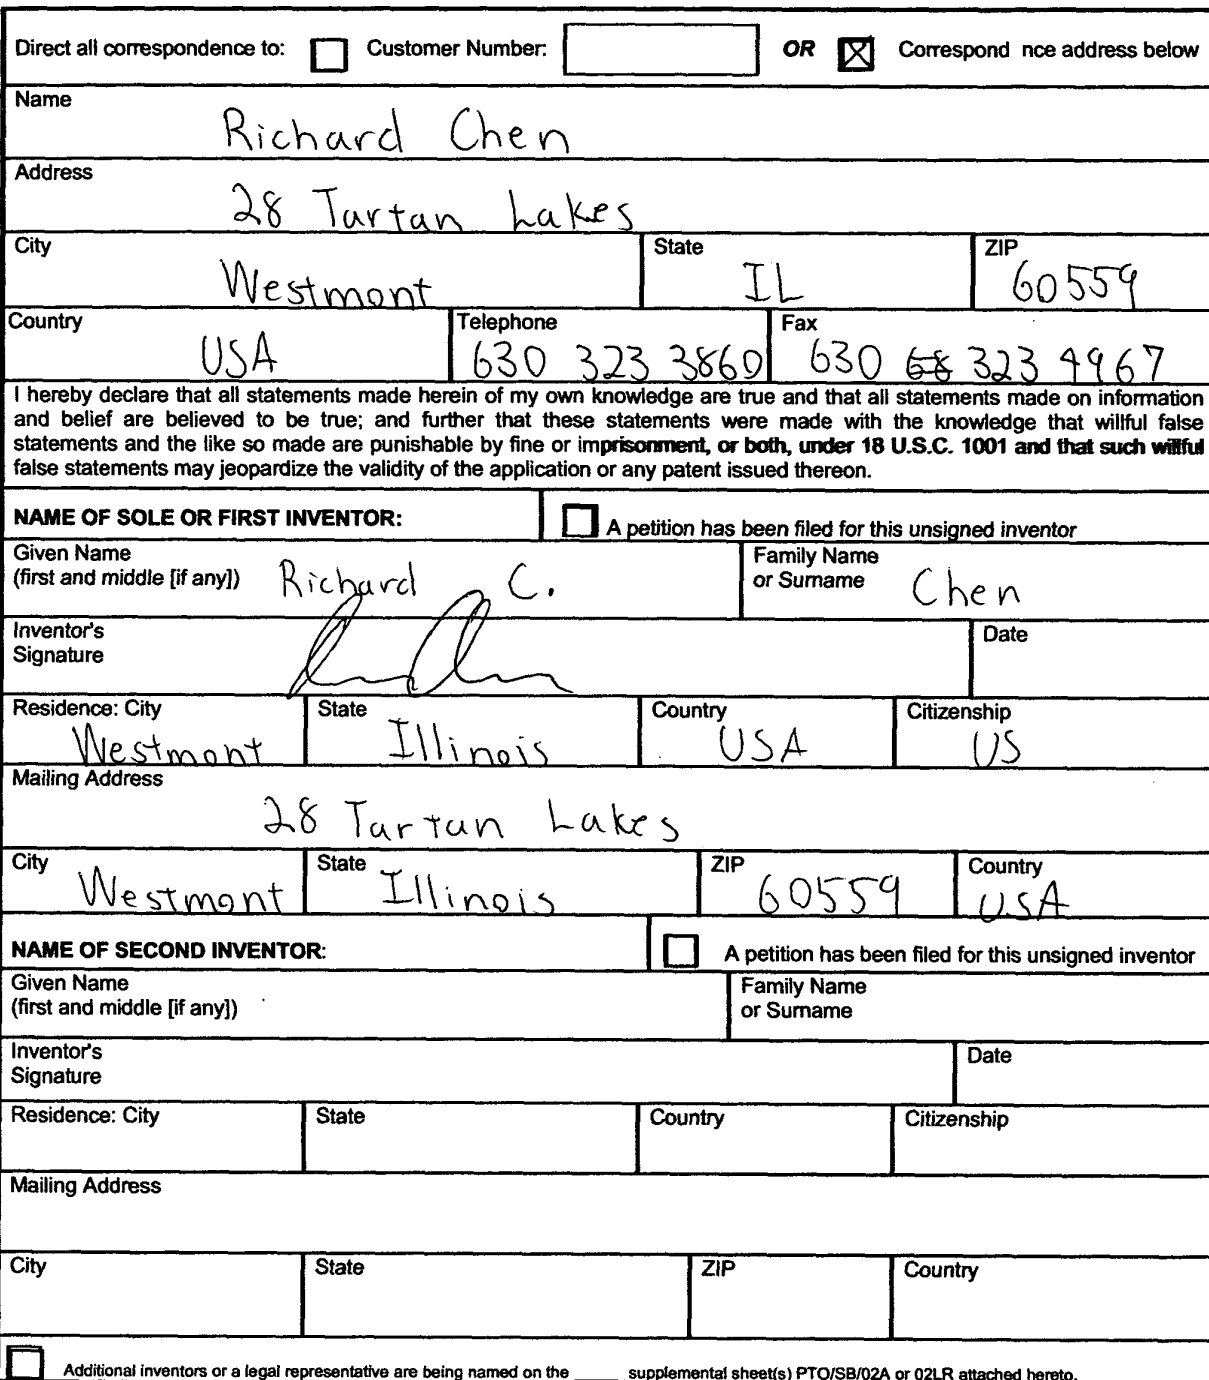 Direct all correspondence to: Customer Number: OR Correspond nce address below
Name
Richard Chen
Address
28 Tartan Lakes
City State ZIP
Westmont IL 60559
Country Telephone Fax
USA 630 323 3860 630 68 323 4967
I hereby declare that all statements made herein of my own knowledge are true and that all statements made on information
and belief are believed to be true; and further that these statements were made with the knowledge that willful false
statements and the like so made are punishable by fine or imprisonment, or both, under 18 U.S.C. 1001 and that such willful
false statements may jeopardize the validity of the application or any patent issued thereon.
NAME OF SOLE OR FIRST INVENTOR: A petition has been filed for this unsigned inventor
Given Name Family Name
(first and middle [if any]) Richard C. or Surname Chen
Inventor's Date
Signature
Residence: City State Country Citizenship
Westmont Illinois USA US
Mailing Address
28 Tartan Lakes
City State ZIP Country
Westmont Illinois 60559 USA
NAME OF SECOND INVENTOR: A petition has been filed for this unsigned inventor
Given Name Family Name
(first and middle [if any]) or Surname
Inventor's Date
Signature
Residence: City State Country Citizenship
Mailing Address
City State ZIP Country
Additional inventors or a legal representative are being named on the ____ supplemental sheet(s) PTO/SB/02A or 02LR attached hereto.